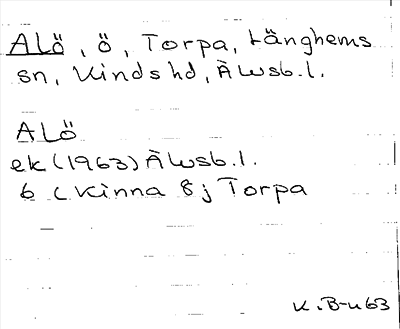 ALÖ, ö, Torpa, Länghems
sn, Kinds hd, Älvsb. l.
ALÖ
ek (1963) Älvsb. l.
6 C Kinna 8j Torpa
K. B-u 63